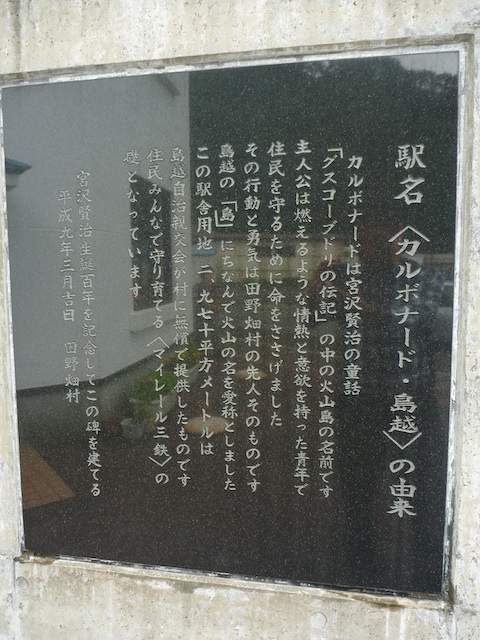 駅名〈カルボナード・島越〉の由来
カルボナードは宮沢賢治の童話
「グスコーブドリの伝記」の中の火山島の名前です
主人公は燃えるような情熱と意欲を持った青年で
住民を守るために命をささげました
その行動と勇気は田野畑村の先人そのものです
島越の「島」にちなんで火山の名を愛称としました
この駅舎用地 二、九七十平方メートルは
島越自治親交会が村に無償で提供したものです
住民みんなで守り育てる〈マイレール三鉄〉の
礎となっています
宮沢賢治生誕百年を記念してこの碑を建てる
平成九年三月吉日 田野畑村